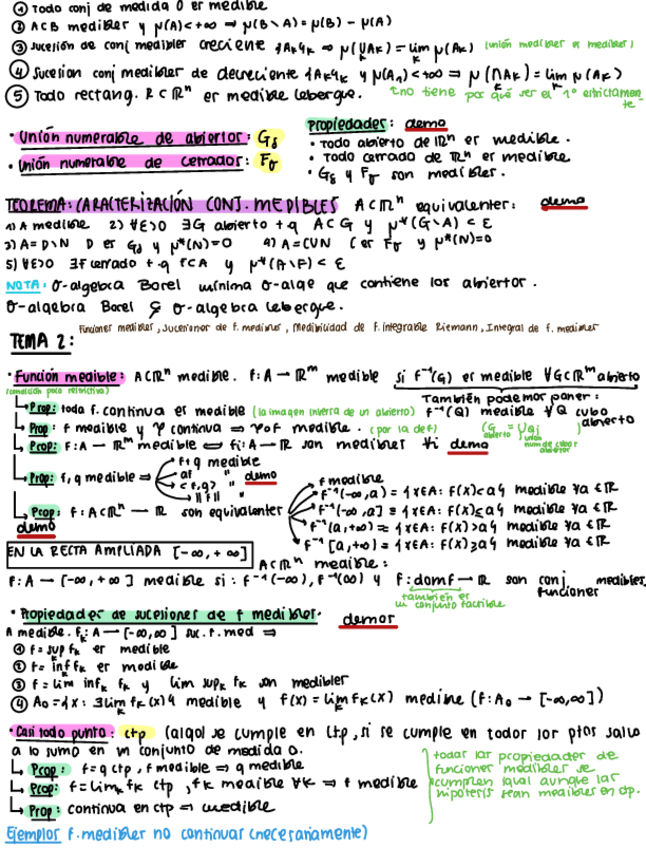 ① Todo conj de medida 0 er medible
② A⊂B medibler y μ(A)<+∞ ⇒ μ(B∖A) = μ(B) - μ(A)
③ Sucesión de conj medibler creciente {Ak}k ⇒ μ(∪Ak) = lim μ(Ak) (unión medibler er medibler)
④ Sucesion conj medibler de decreciente {Ak}k y μ(A1)<+∞ ⇒ μ(∩Ak) = lim μ(Ak)
⑤ Todo rectang. R⊂ℝⁿ er medible Leberque. no tiene por qué ser el 1º estrictamente
• Unión numerable de abiertor: Gδ
• Unión numerable de cerrador: Fσ
Propiedader: demo
• Todo abierto de ℝⁿ er medible.
• Todo cerrado de ℝⁿ er medible
• Gδ y Fσ son medibler.
TEOREMA: CARACTERIZACIÓN CONJ. MEDIBLES A⊂ℝⁿ equivalenter: demo
1) A medible 2) ∀ε>0 ∃G abierto t.q A⊂G y μ*(G∖A) < ε
3) A=D∖N D er Gδ y μ*(N)=0 4) A=C∪N C er Fσ y μ*(N)=0
5) ∀ε>0 ∃F cerrado t.q F⊂A y μ*(A∖F) < ε
NOTA: σ-algebra Borel mínima σ-alge que contiene los abiertor.
σ-algebra Borel ⊊ σ-algebra Leberque.
Funcioner medibler, Sucesioner de f. medibler, Medibilidad de f. integrable Riemann, Integral de f. medibler
TEMA 2:
• Función medible: A⊂ℝⁿ medible. f: A → ℝᵐ medible si f⁻¹(G) er medible ∀G⊂ℝᵐ abierto
(condición poco restrictiva)
También podemor poner:
Prop: toda f. continua er medible (la imagen inversa de un abierto) f⁻¹(Q) medible ∀Q cubo abierto
Prop: f medible y φ continua ⇒ φof medible. (por la def) (G abierto = ∪Qj unión num de cubor abiertor)
Prop: F: A → ℝᵐ medible ⟺ fi: A → ℝ son medibler ∀i demo
Prop: f, g medible ⇒ f+g medible
af "
<f,g> " demo
||f|| "
Prop: f: A⊂ℝⁿ → ℝ son equivalenter f medible
demo
f⁻¹(-∞,a) = {x∈A: f(x)<a} medible ∀a∈ℝ
f⁻¹(-∞,a] = {x∈A: f(x)≤a} medible ∀a∈ℝ
f⁻¹(a,+∞) = {x∈A: f(x)>a} medible ∀a∈ℝ
f⁻¹[a,+∞) = {x∈A: f(x)≥a} medible ∀a∈ℝ
EN LA RECTA AMPLIADA [-∞,+∞] A⊂ℝⁿ medible:
F: A → [-∞,+∞] medible si: f⁻¹(-∞), f⁻¹(∞) y f: domf → ℝ son conj medibles, funcioner
también er un conjunto factible
• Propiedader de sucesioner de f medibler. demor
A medible. fk: A → [-∞,∞] suc. f. med ⇒
① f = sup fk er medible
② f = inf fk er medible
③ f = lim infk fk y lim supk fk son medibler
④ A0 = {x: ∃lim fk(x)} medible y f(x) = lim fk(x) medible (f: A0 → [-∞,∞])
• Casi todo punto: ctp (algo) se cumple en ctp, si se cumple en todor lor ptos salvo
a lo sumo en un conjunto de medida 0.
Prop: f=g ctp, f medible ⇒ g medible
Prop: f = limk fk ctp, fk medible ∀k ⇒ f medible
Prop: continua en ctp ⇒ medible
todar lar propiedader de
funcioner medibler se
cumplen igual aunque lar
hipotesir sean medibler en ctp.
Ejemplor f. medibler no continuar (necesariamente)